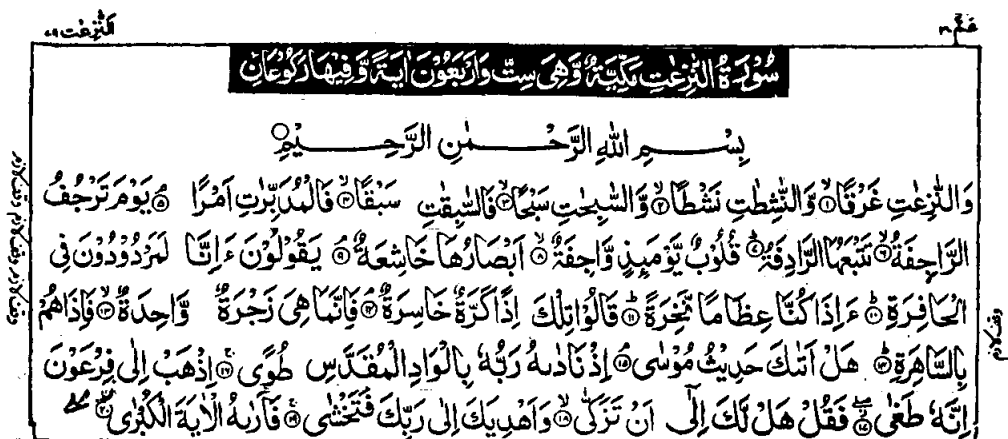 عَمَّ ٣٠
اَلنّٰزِعٰت ٧٩
سُوْرَةُ النّٰزِعٰتِ مَكِّيَّةٌ وَّهِیَ سِتٌّ وَّاَرْبَعُوْنَ اٰيَةً وَّفِيْهَا رَكُوْعَانِ
بِسْمِ اللّٰهِ الرَّحْمٰنِ الرَّحِيْمِ
وَالنّٰزِعٰتِ غَرْقًا ۙ﴿١﴾ وَّالنّٰشِطٰتِ نَشْطًا ۙ﴿٢﴾ وَّالسّٰبِحٰتِ سَبْحًا ۙ﴿٣﴾ فَالسّٰبِقٰتِ سَبْقًا ۙ﴿٤﴾ فَالْمُدَبِّرٰتِ اَمْرًا ۘ﴿٥﴾ يَوْمَ تَرْجُفُ
الرَّاجِفَةُ ۙ﴿٦﴾ تَتْبَعُهَا الرَّادِفَةُ ؕ﴿٧﴾ قُلُوْبٌ يَّوْمَىِٕذٍ وَّاجِفَةٌ ۙ﴿٨﴾ اَبْصَارُهَا خَاشِعَةٌ ۘ﴿٩﴾ يَقُوْلُوْنَ ءَاِنَّا لَمَرْدُوْدُوْنَ فِی
الْحَافِرَةِ ؕ﴿١٠﴾ ءَاِذَا كُنَّا عِظَامًا نَّخِرَةً ؕ﴿١١﴾ قَالُوْا تِلْكَ اِذًا كَرَّةٌ خَاسِرَةٌ ۘ﴿١٢﴾ فَاِنَّمَا هِیَ زَجْرَةٌ وَّاحِدَةٌ ۙ﴿١٣﴾ فَاِذَا هُمْ
بِالسَّاهِرَةِ ؕ﴿١٤﴾ هَلْ اَتٰىكَ حَدِيْثُ مُوْسٰی ۘ﴿١٥﴾ اِذْ نَادٰىهُ رَبُّهٗ بِالْوَادِ الْمُقَدَّسِ طُوًی ۚ﴿١٦﴾ اِذْهَبْ اِلٰی فِرْعَوْنَ
اِنَّهٗ طَغٰی ۖ﴿١٧﴾ فَقُلْ هَلْ لَّكَ اِلٰۤی اَنْ تَزَكّٰی ۙ﴿١٨﴾ وَاَهْدِيَكَ اِلٰی رَبِّكَ فَتَخْشٰی ۚ﴿١٩﴾ فَاَرٰىهُ الْاٰيَةَ الْكُبْرٰی ۖ﴿٢٠﴾
وقف لازم وقف لازم وقف لازم